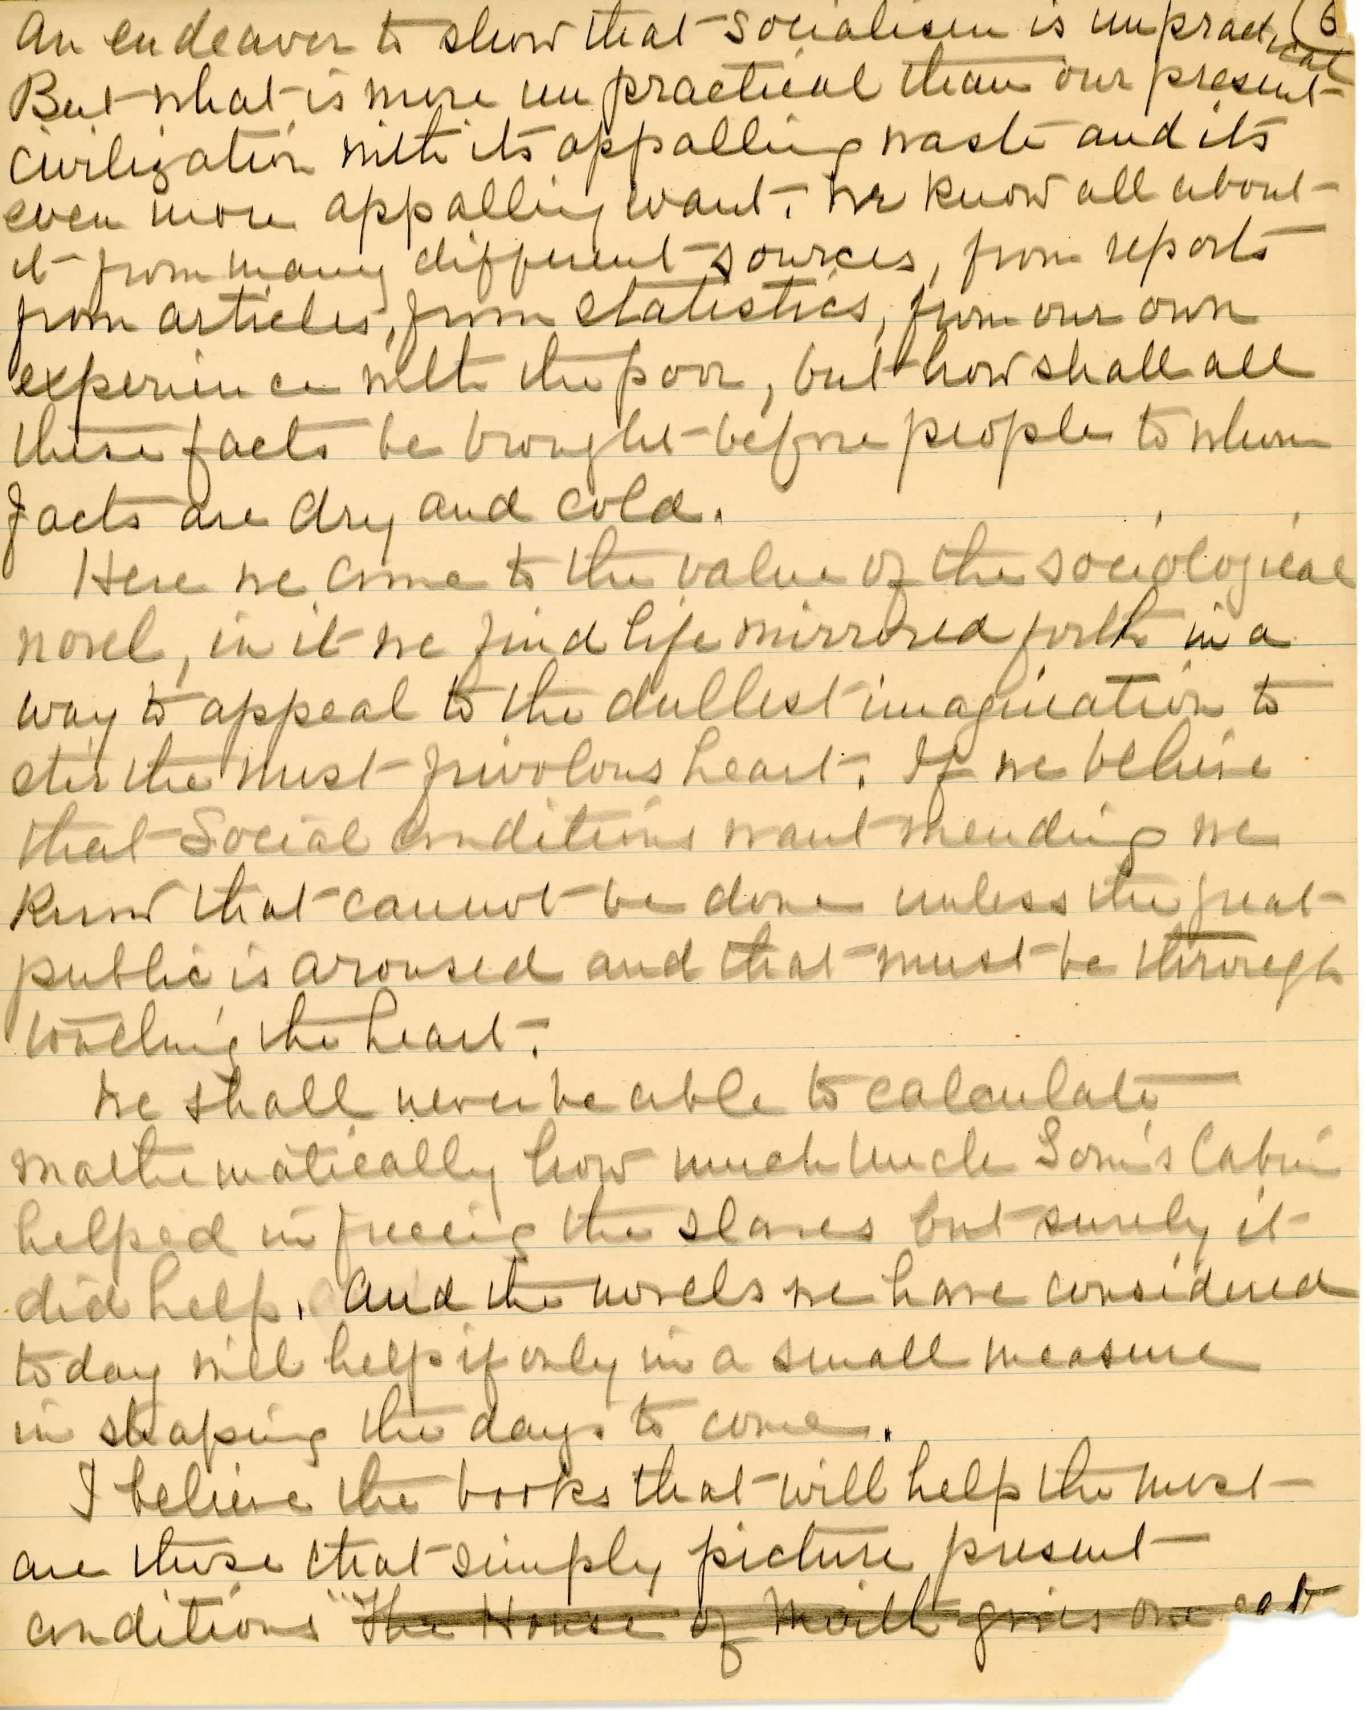 (6
An endeavor to show that Socialism is unpractical
But what is more unpractical than our present
civilization with its appalling waste and its
even more appalling want. We know all about
it from many different sources, from reports
from articles, from statistics, from our own
experience with the poor, but how shall all
these facts be brought before people to whom
facts are dry and cold.
Here we come to the value of the sociological
novel, in it we find life mirrored forth in a
way to appeal to the dullest imagination to
stir the most frivolous heart. If we believe
that Social conditions want mending we
know that cannot be done unless the great
public is aroused and that must be through
touching the heart.
We shall never be able to calculate
mathematically how much Uncle Tom's Cabin
helped in freeing the slaves but surely it
did help. And the novels we have considered
today will help if only in a small measure
in shaping the days to come.
I believe the books that will help the most
are those that simply picture present
conditions "The House of Mirth gives one